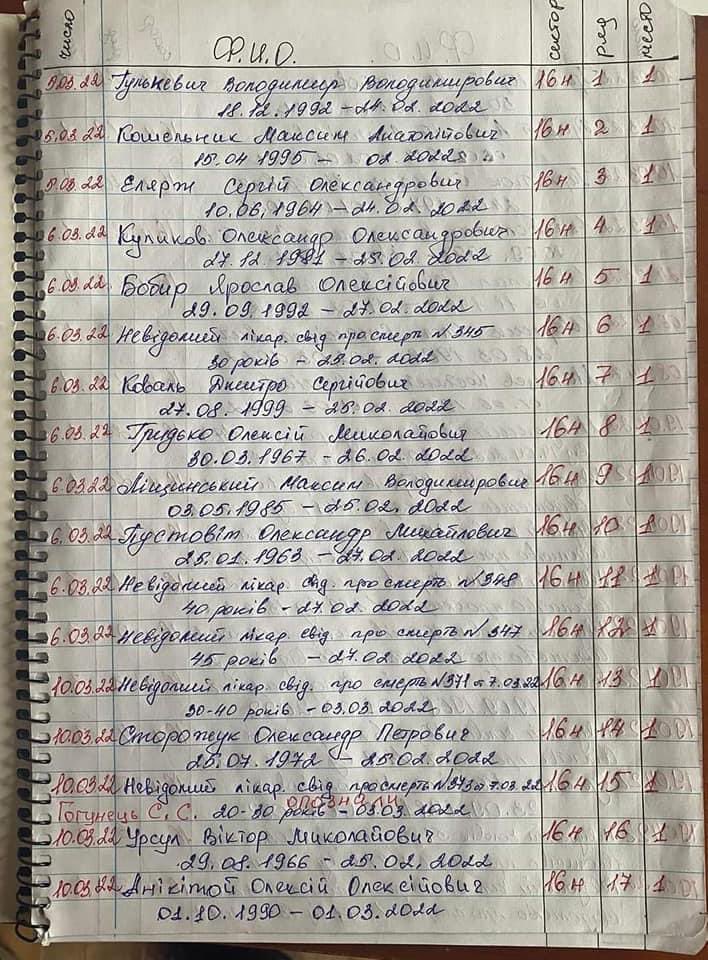 число Ф.И.О. сектор ряд место
5.03.22 Гулькевич Володимир Володимирович 16н 1 1
18.12.1992 – 24.02.2022
5.03.22 Кошельник Максим Анатолійович 16н 2 1
15.04 1995 – 02.2022
5.03.22 Елярж Сергій Олександрович 16н 3 1
10.06.1964 – 24.02.2022
6.03.22 Куликов Олександр Олександрович 16н 4 1
27.12.1981 – 25.02.2022
6.03.22 Бобир Ярослав Олексійович 16н 5 1
29.09.1992 – 27.02.2022
6.03.22 Невідомий лікар. свід про смерть №345 16н 6 1
30 років – 25.02.2022
6.03.22 Коваль Дмитро Сергійович 16н 7 1
27.08.1999 – 25.02.2022
6.03.22 Гридько Олексій Миколайович 16н 8 1
30.03.1967 – 26.02.2022
6.03.22 Ліщинський Максим Володимирович 16н 9 1
03.05.1985 – 25.02.2022
6.03.22 Пустовіт Олександр Михайлович 16н 10 1
25.01.1963 – 27.02.2022
6.03.22 Невідомий лікар. свід. про смерть №348 16н 11 1
40 років – 27.02.2022
6.03.22 Невідомий лікар. свід. про смерть №347 16н 12 1
45 років – 27.02.2022
10.03.22 Невідомий лікар. свід. про смерть №371 от 7.03.22 16н 13 1
30-40 років – 03.03.2022
10.03.22 Сторожук Олександр Петрович 16н 14 1
25.07.1972 – 25.02.2022
10.03.22 Невідомий лікар. свід. про смерть №373 от 7.03.22 16н 15 1
опознали
Гогунець С.С. 20-30 років – 03.03.2022
10.03.22 Урсул Віктор Миколайович 16н 16 1
29.01.1966 – 25.02.2022
10.03.22 Анікітой Олексій Олексійович 16н 17 1
01.10.1990 – 01.03.2022